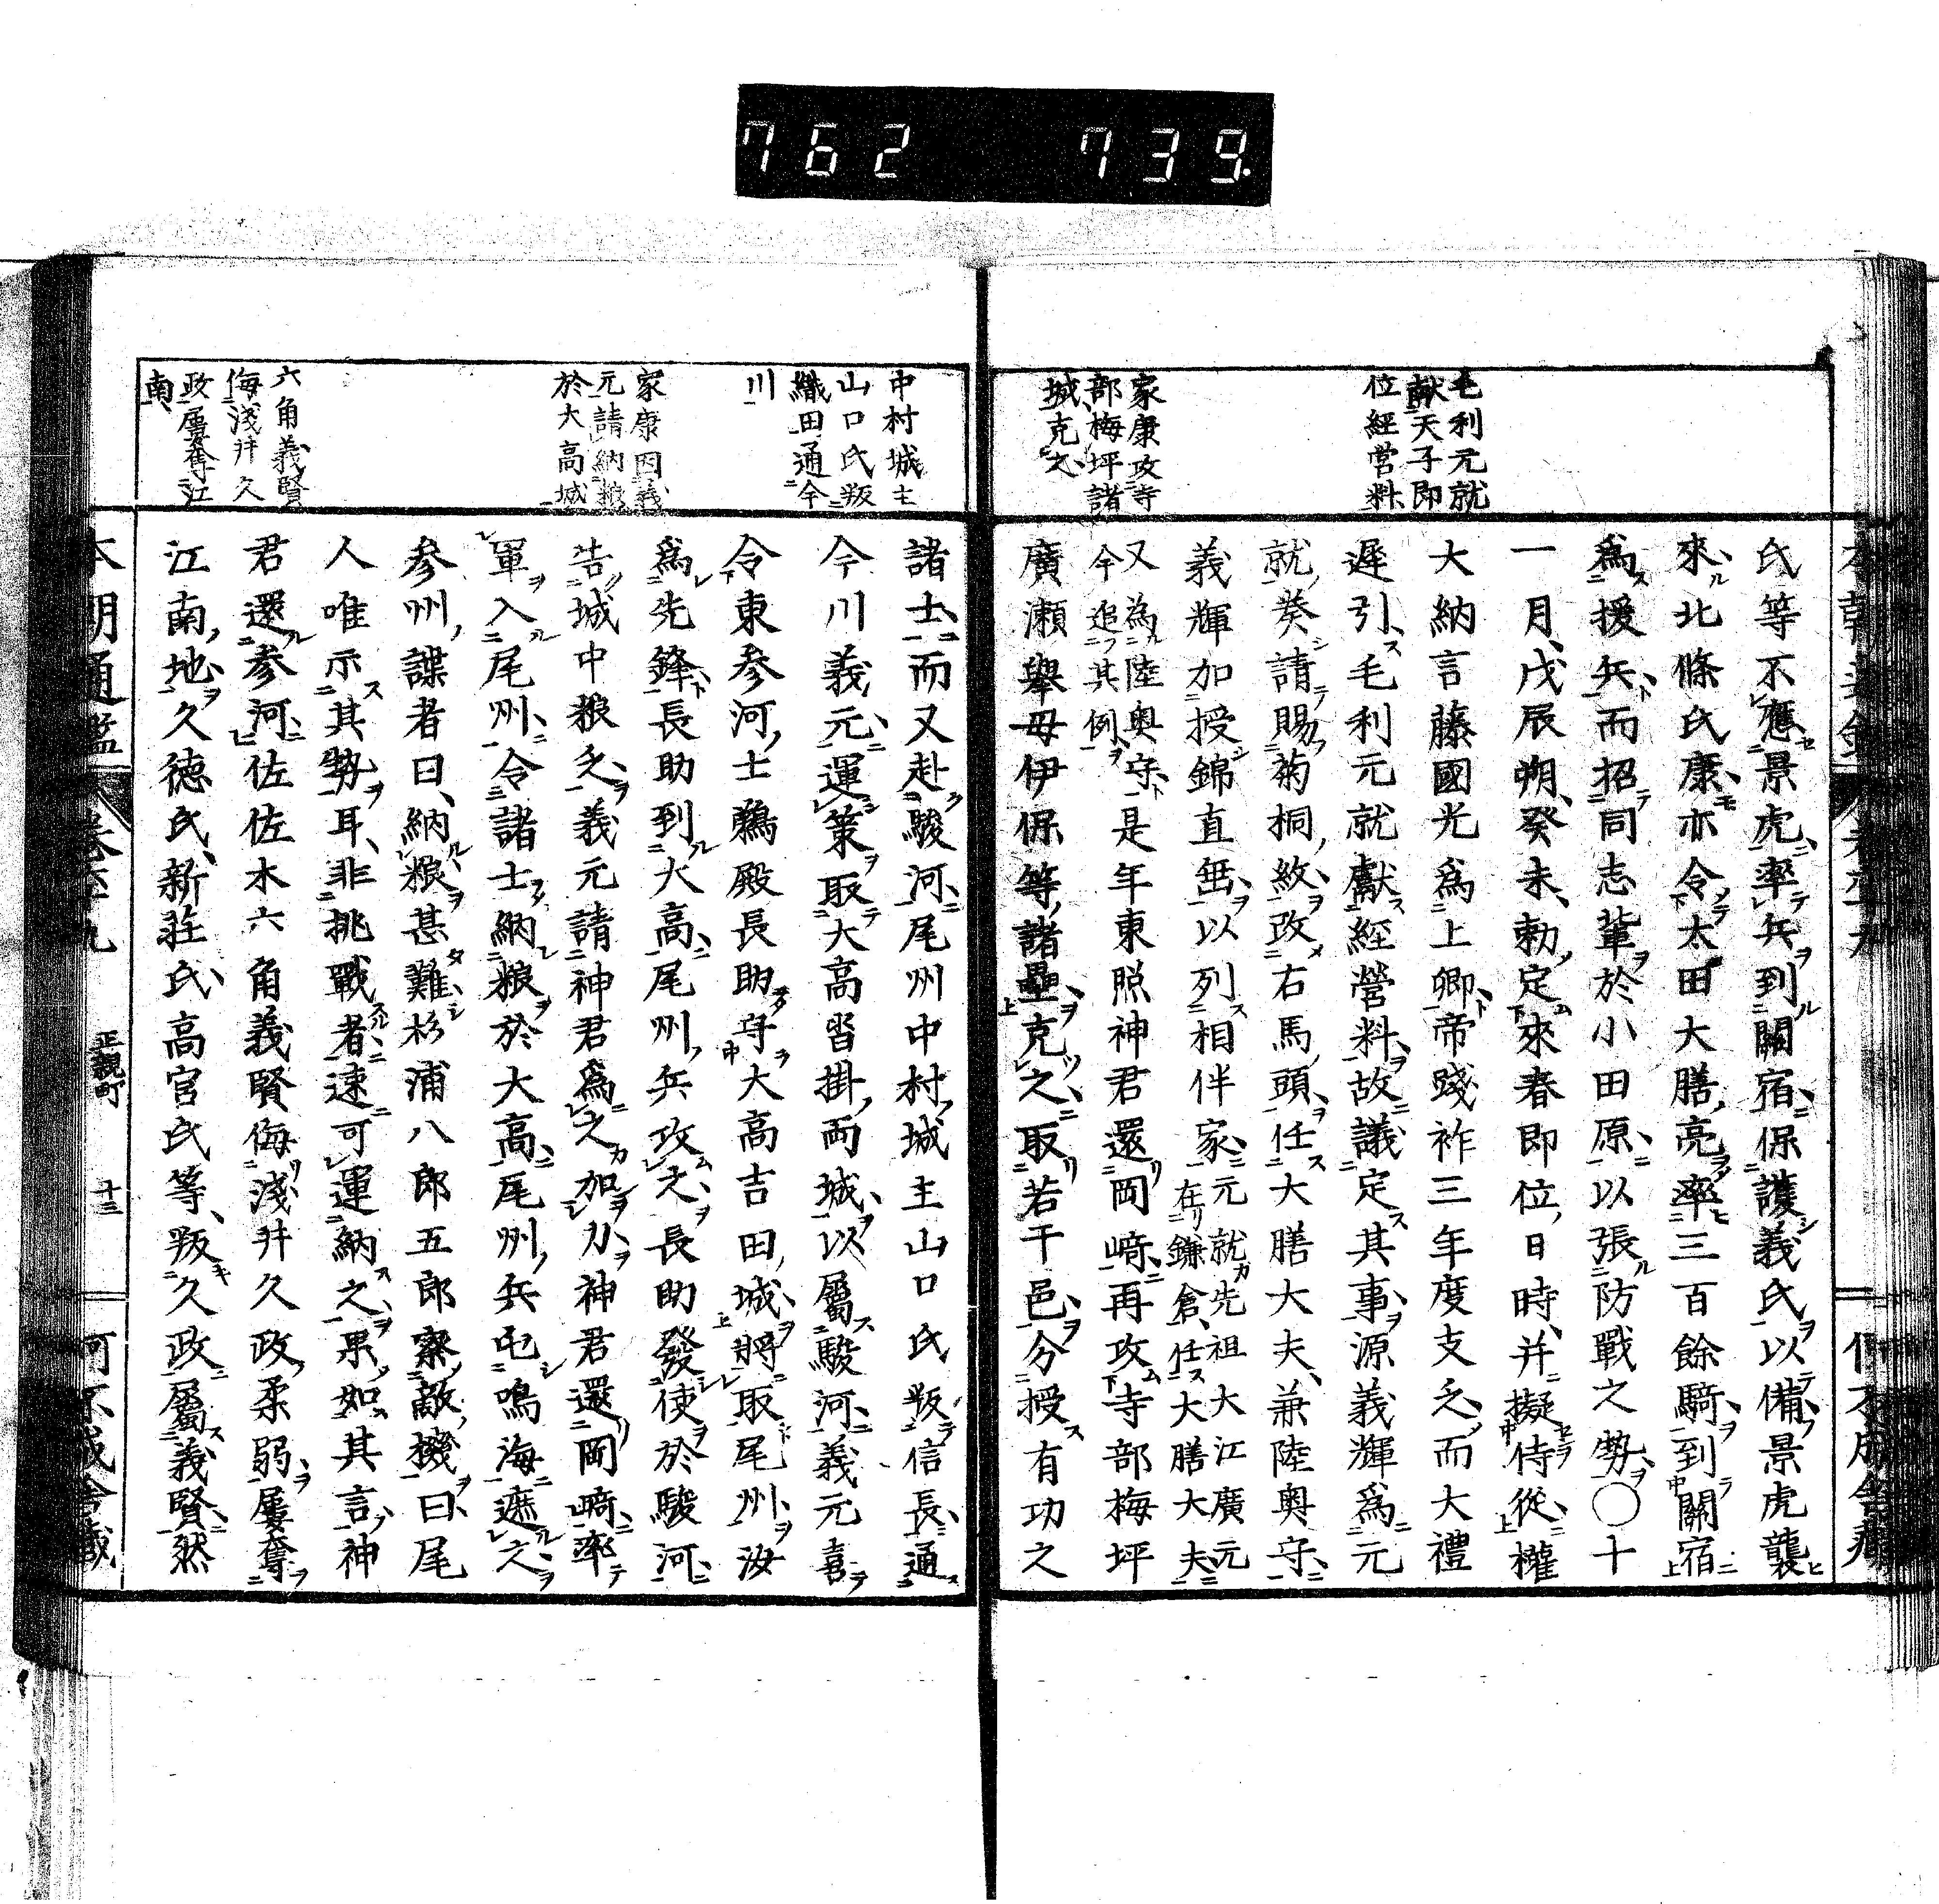 762 739.
毛利元就
獻天子即
位經營料
家康攻寺
部梅坪諸
城克之
氏等不應景虎率兵到關宿保護義氏以備景虎襲
來北條氏康亦令太田大膳亮率三百餘騎到關宿
爲援兵而招同志輩於小田原以張防戰之勢○十
一月戊辰朔癸未勅定來春即位日時并擬侍從權
大納言藤國光爲上卿帝踐祚三年度支乏而大禮
遲引毛利元就獻經營料故議定其事源義輝爲元
就葵請賜菊桐紋改右馬頭任大膳大夫兼陸奥守
義輝加授錦直垂以列相伴家元就先祖大江廣元
在鎌倉任大膳大夫
又為陸奥守
今追其例是年東照神君還岡崎再攻寺部梅坪
廣瀬舉母伊保等諸壘克之取若干邑分授有功之
中村城主
山口氏叛
織田通今
川
家康因義
元請納粮
於大高城
六角義賢
侮淺井久
政屢奪江
南
諸士而又赴駿河尾州中村城主山口氏叛信長通
今川義元運策取大高沓掛両城以屬駿河義元喜
令東参河士鵜殿長助守大高吉田城將取尾州汝
爲先鋒長助到大高尾州兵攻之長助發使於駿河
告城中粮乏義元請神君爲之加力神君還岡崎率
軍入尾州令諸士納粮於大高尾州兵屯鳴海遮之
参州諜者曰納粮甚難杉浦八郎五郎察敵機曰尾
人唯示其勢耳非挑戰者速可運納之果如其言神
君還参河佐佐木六角義賢侮淺井久政柔弱屢奪
江南地久徳氏新荘氏高宮氏等叛久政屬義賢然
本朝通鑑 卷 九 正親町 十三